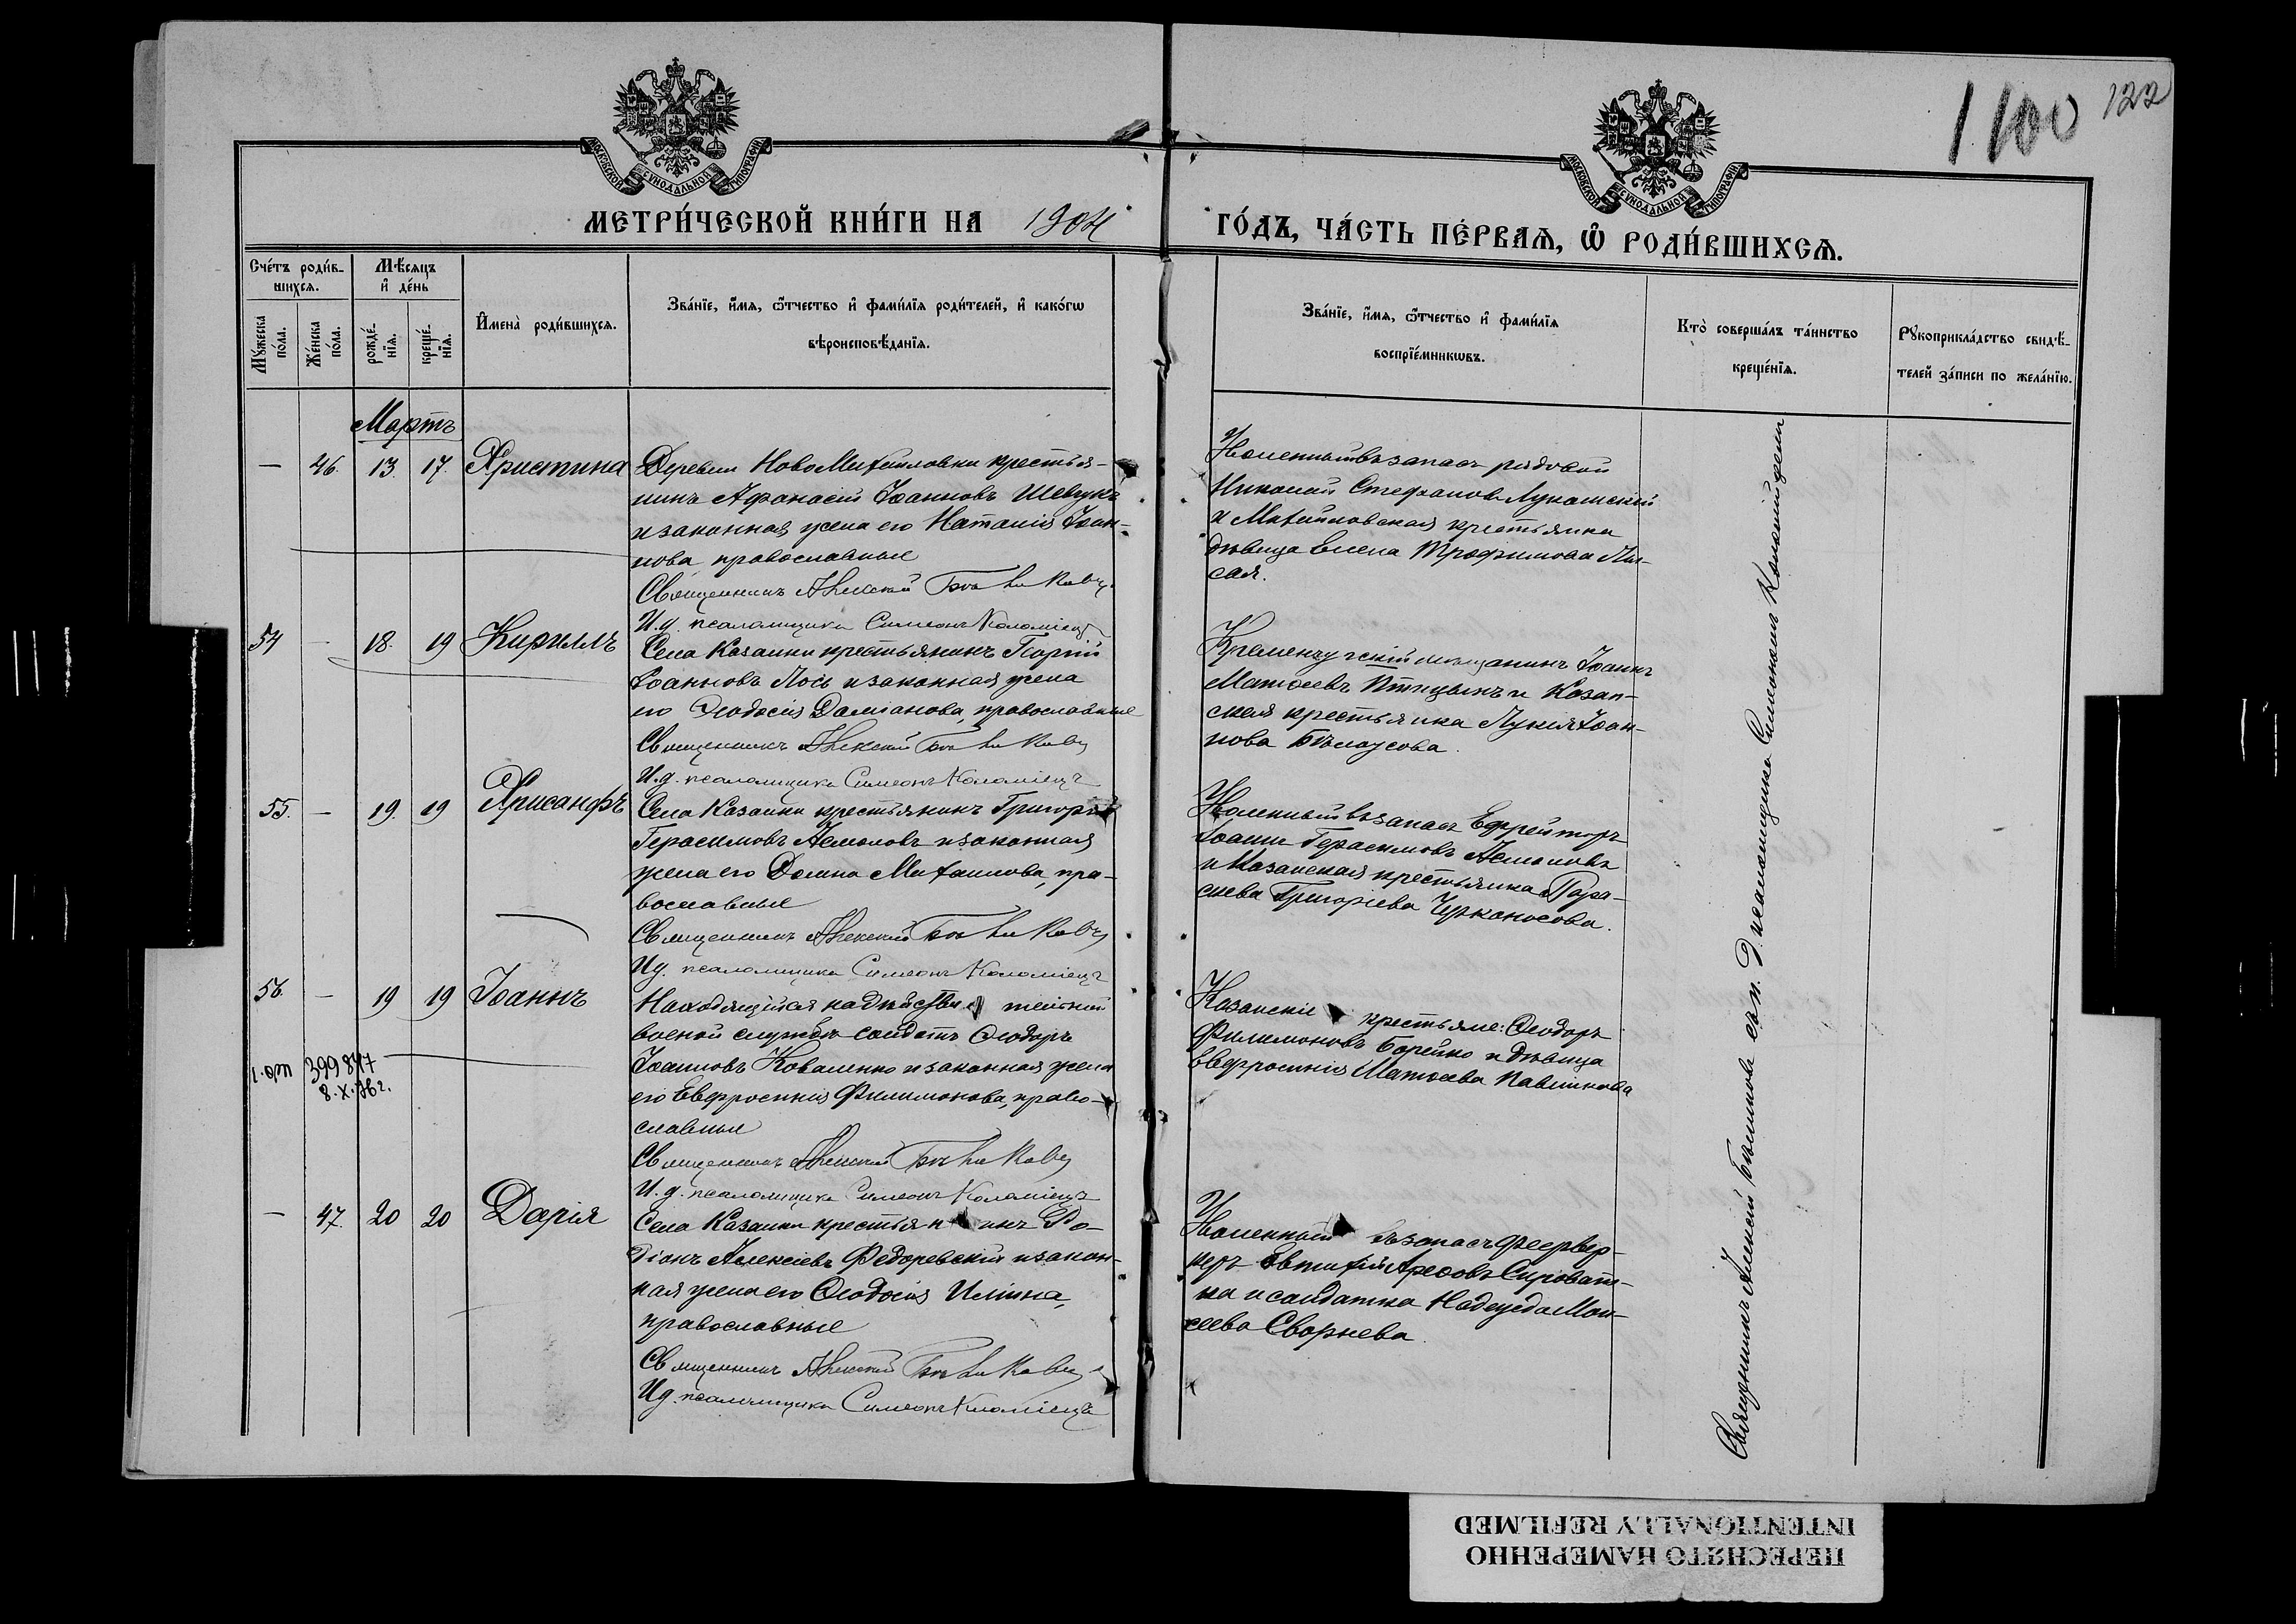 1100 122
МОСКОВСКОЙ СУНОДАЛЬНОЙ ТИПОГРАФІИ
МОСКОВСКОЙ СУНОДАЛЬНОЙ ТИПОГРАФІИ
МЕТРИ́ЧЕСКОЙ КНИ́ГИ НА 1904
ГО́ДЪ, ЧА́СТЬ ПЕ́РВАѦ, Ѽ РОДИ́ВШИХСѦ.
Сче́тъ роди́в-
шихсѧ.
Мѣ́сѧцъ
и҆ де́нь
Мꙋ́жеска
по́ла.
Же́нска
по́ла.
рожде́-
нїѧ.
креще́-
нїѧ.
И҆мена̀ роди́вшихсѧ.
Зва́нїе, и҆́мѧ, ѻ҆́тчество и҆ фами́лїѧ роди́телей, и҆ како́гѡ
вѣроисповѣ́данїѧ.
Зва́нїе, и҆́мѧ, ѻ҆́тчество и҆ фами́лїѧ
воспрїе́мникѡвъ.
Кто̀ соверша́лъ та́инство
креще́нїѧ.
Рꙋкоприкла́дство свидѣ́-
телей за́писи по жела́нїю.
Мартъ
— 46. 13. 17. Христина
Деревни НовоМихайловки крестья-
нинъ Афанасій Іоанновъ Шевчукъ
и законная жена его Наталія Іоан-
нова, православные
Священникъ Алексій
И.д. псаломщика Симеонъ Коломіецъ
Уволенный въ запасъ рядовой
Николай Стефановъ Лукашскій
и Михайловская крестьянка
дѣвица Елена Трофимова Лы-
сая.
54 — 18. 19 Кириллъ
Села Казанки крестьянинъ Георгій
Іоанновъ Лось и законная жена
его Ѳеодосія Даміанова, православные
Священникъ Алексій
И.д. псаломщика Симеонъ Коломіецъ
Кременчугскій мѣщанинъ Іоаннъ
Матѳеевъ Птицынъ и Казан-
ская крестьянка Лукія Іоан-
нова Бѣлоусова.
55. — 19. 19 Хрисанфъ
Села Казанки крестьянинъ Григорій
Герасимовъ Асмоловъ и законная
жена его Домна Михаилова, пра-
вославные
Священникъ Алексій
И.д. псаломщика Симеонъ Коломіецъ
Уволенный въ запасъ Ефрейторъ
Іоаннъ Герасимовъ Асмоловъ
и Казанская крестьянка Пара-
скева Григоріева Чурконосова.
56. — 19 19 Іоаннъ
Находящійся на дѣйстви тельной
военой службѣ солдатъ Ѳеодоръ
Іоанновъ Коваленко и законная жена
его Евфросинія Филимонова, право-
славные
Священникъ Алексій
И.д. псаломщика Симеонъ Коломіецъ
399847
8.X.
Казанскіе крестьяне: Ѳеодоръ
Филимоновъ Борейко и дѣвица
Евфросинія Матѳеева Павликова
— 47. 20 20 Дарія
Села Казанки крестьян инъ Ро-
діонъ Алексіевъ Федоревскій и закон-
ная жена его Ѳеодосія Ильина,
православные
Священникъ Алексій
И.д. псаломщика Симеонъ Коломіецъ
Уволенный въ запасъ Феервер-
керъ Евтихій Сироват-
ка и солдатка Надежда Мои-
сеева Сворнева.
Священникъ Алексій съ и.д. псаломщика Симеономъ Коломійцемъ
ПЕРЕСНЯТО НАМЕРЕННО
INTENTIONALLY REFILMED